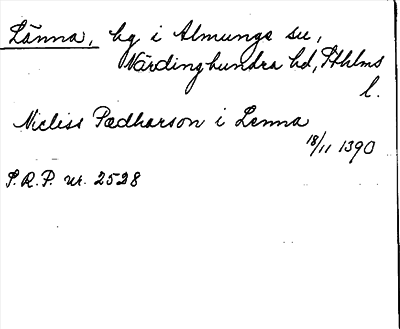 Länna, hg i Almunge sn,
Närdinghundra hd, Sthlms
l.
Nicliss Pædharson i Lenna
18/11 1390
S.R.P. nr. 2528